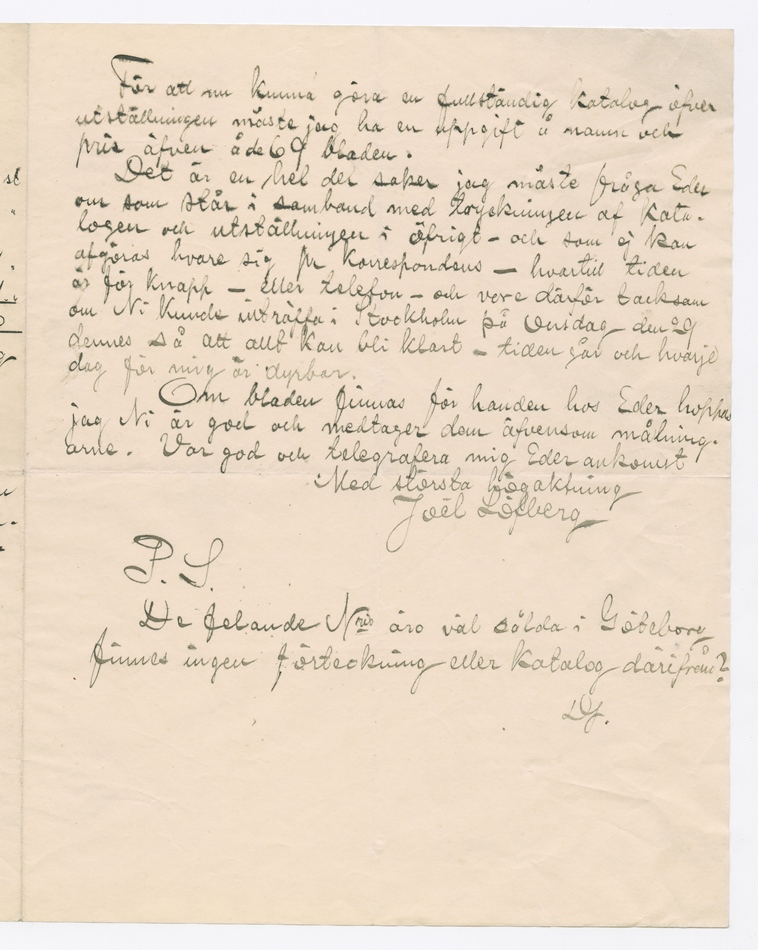 För att nu kunna göra en fullständig katalog öfver
utställningen måste jag ha en uppgift å namn och
pris äfven å de 69 bladen.
Det är en hel del saker jag måste fråga Eder
om som står i samband med tryckningen af kata-
logen och utställningen i öfrigt – och som ej kan
afgöras hvare sig pr korrespondens – hvartill tiden
är för knapp – eller telefon – och vore därför tacksam
om Ni kunde inträffa i Stockholm på Onsdag den 29
dennes så att allt kan bli klart – tiden går och hvarje
dag för mig är dyrbar.
Om bladen finnas för handen hos Eder hoppas
jag Ni är god och medtager dem äfvensom målning-
arne. Var god och telegrafera mig Eder ankomst
Med största högaktning
Joël Löfberg
P. S.
De felande Nris äro väl sålda i Göteborg
finnes ingen förteckning eller katalog därifrån?
Ds.
st